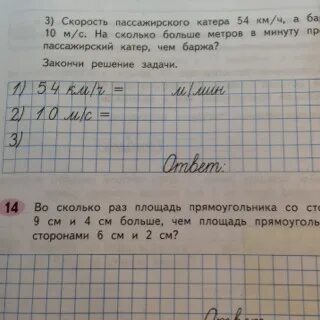 3) Скорость пассажирского катера 54 км/ч, а ба
10 м/с. На сколько больше метров в минуту пр
пассажирский катер, чем баржа?
Закончи решение задачи.
1) 54 км/ч = м/мин
2) 10 м/с =
3)
Ответ:
14 Во сколько раз площадь прямоугольника со сто
9 см и 4 см больше, чем площадь прямоуголь
сторонами 6 см и 2 см?
Ответ